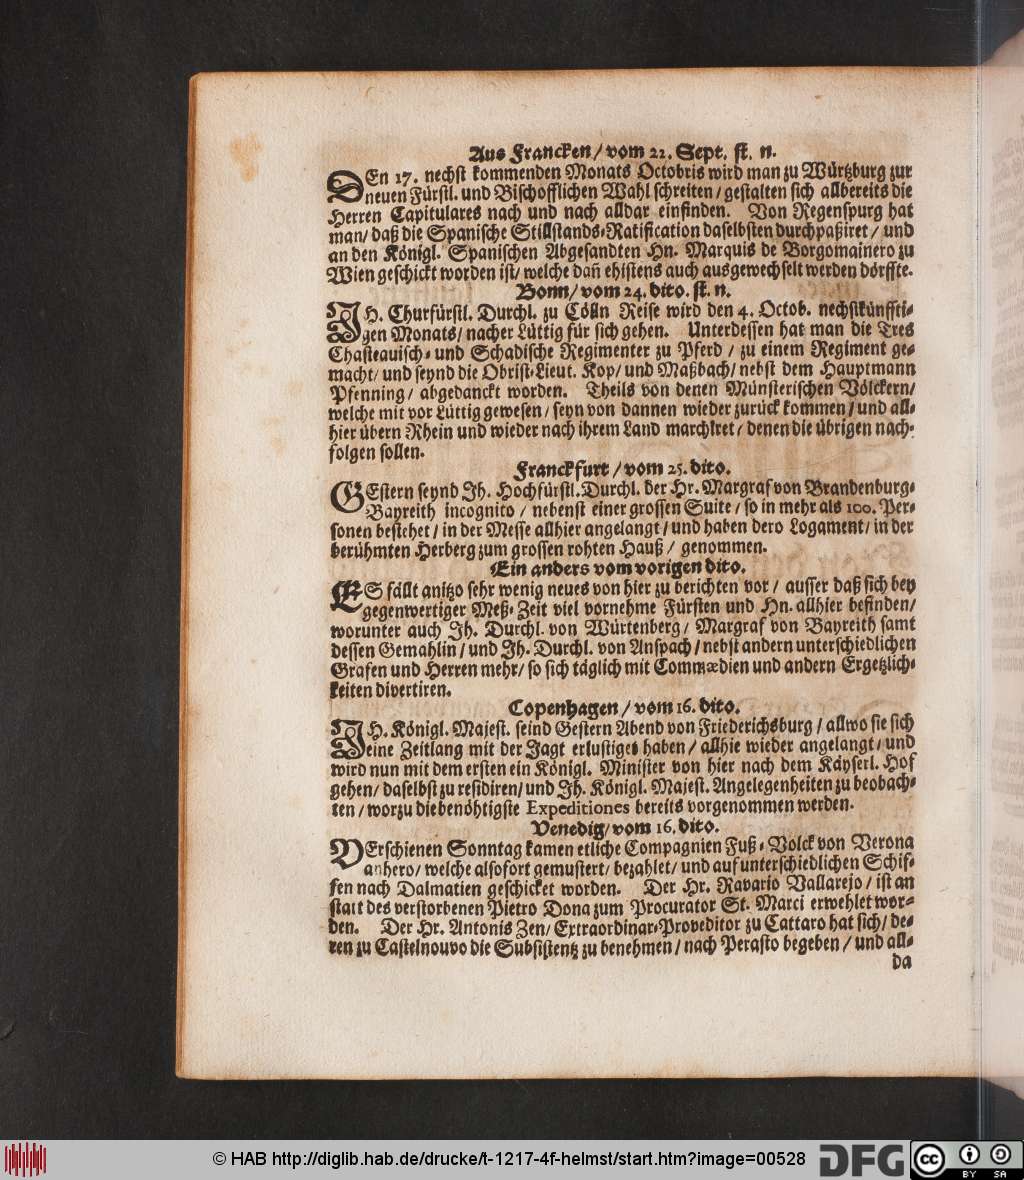 Aus Francken / vom 22. Sept. st. n.
DEn 17. nechst kommenden Monats Octobris wird man zu Würtzburg zur
neuen Fürstl. und Bischofflichen Wahl schreiten / gestalten sich allbereits die
Herren Capitulares nach und nach alldar einfinden. Von Regenspurg hat
man / daß die Spanische Stillstands-Ratification daselbsten durchpaßiret / und
an den Königl. Spanischen Abgesandten Hn. Marquis de Borgomainero zu
Wien geschickt worden ist / welche dañ ehistens auch ausgewechselt werden dörffte.
Bonn / vom 24. dito. st. n.
IH. Churfürstl. Durchl. zu Cölln Reise wird den 4. Octob. nechstkünffti-
gen Monats / nacher Lüttig für sich gehen. Unterdessen hat man die Tres
Chasteauisch- und Schadische Regimenter zu Pferd / zu einem Regiment ge-
macht / und seynd die Obrist-Lieut. Kop / und Maßbach / nebst dem Hauptmann
Pfenning / abgedanckt worden. Theils von denen Münsterischen Völckern /
welche mit vor Lüttig gewesen / seyn von dannen wieder zurück kommen / und all-
hier übern Rhein und wieder nach ihrem Land marchiret / denen die übrigen nach-
folgen sollen.
Franckfurt / vom 25. dito.
GEstern seynd Ih. Hochfürstl. Durchl. der Hr. Margraf von Brandenburg-
Bayreith incognito / nebenst einer grossen Suite / so in mehr als 100. Per-
sonen bestehet / in der Messe allhier angelangt / und haben dero Logament / in der
berühmten Herberg zum grossen rohten Hauß / genommen.
Ein anders vom vorigen dito.
ES fällt anitzo sehr wenig neues von hier zu berichten vor / ausser daß sich bey
gegenwertiger Meß-Zeit viel vornehme Fürsten und Hn. allhier befinden /
worunter auch Ih. Durchl. von Würtenberg / Margraf von Bayreith samt
dessen Gemahlin / und Ih. Durchl. von Anspach / nebst andern unterschiedlichen
Grafen und Herren mehr / so sich täglich mit Commædien und andern Ergetzlich-
keiten divertiren.
Copenhagen / vom 16. dito.
IH. Königl. Majest. seind Gestern Abend von Friederichsburg / allwo sie sich
eine Zeitlang mit der Jagt erlustiget haben / allhie wieder angelangt / und
wird nun mit dem ersten ein Königl. Minister von hier nach dem Käyserl. Hof
gehen / daselbst zu residiren / und Ih. Königl. Majest. Angelegenheiten zu beobach-
ten / worzu die benöhtigste Expeditiones bereits vorgenommen werden.
Venedig / vom 16. dito.
VErschienen Sonntag kamen etliche Compagnien Fuß-Volck von Verona
anhero / welche alsofort gemustert / bezahlet / und auf unterschiedlichen Schif-
fen nach Dalmatien geschicket worden. Der Hr. Ravario Vallarejo / ist an
statt des verstorbenen Pietro Dona zum Procurator St. Marci erwehlet wor-
den. Der Hr. Antonis Zen / Extraordinar-Proveditor zu Cattaro hat sich / de-
ren zu Castelnouvo die Subsistentz zu benehmen / nach Perasto begeben / und all-
da
© HAB http://diglib.hab.de/drucke/t-1217-4f-helmst/start.htm?image=00528
DFG
cc BY SA